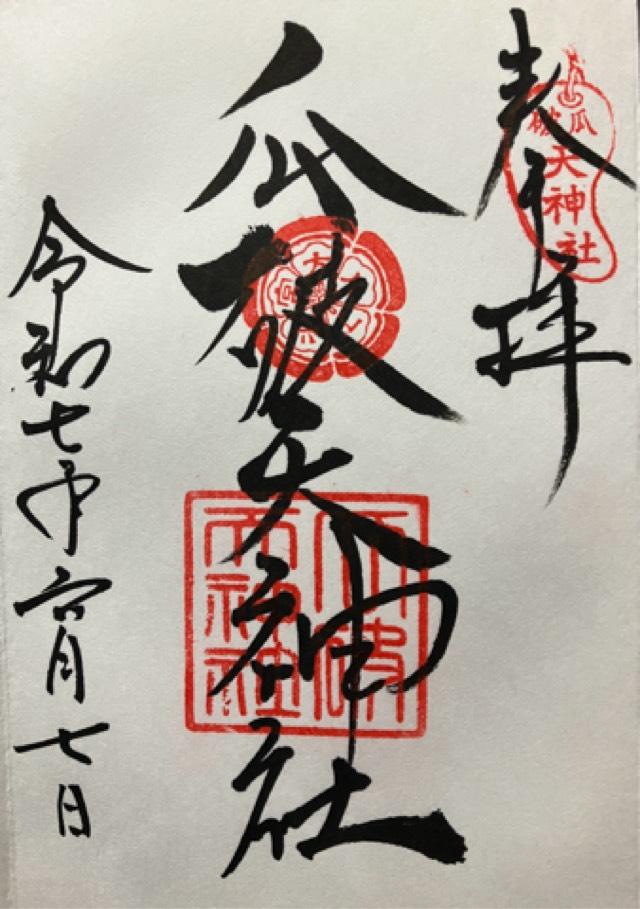 奉拝
瓜破
天神社
瓜破天神社
瓜破
天神社
令和七年六月七日